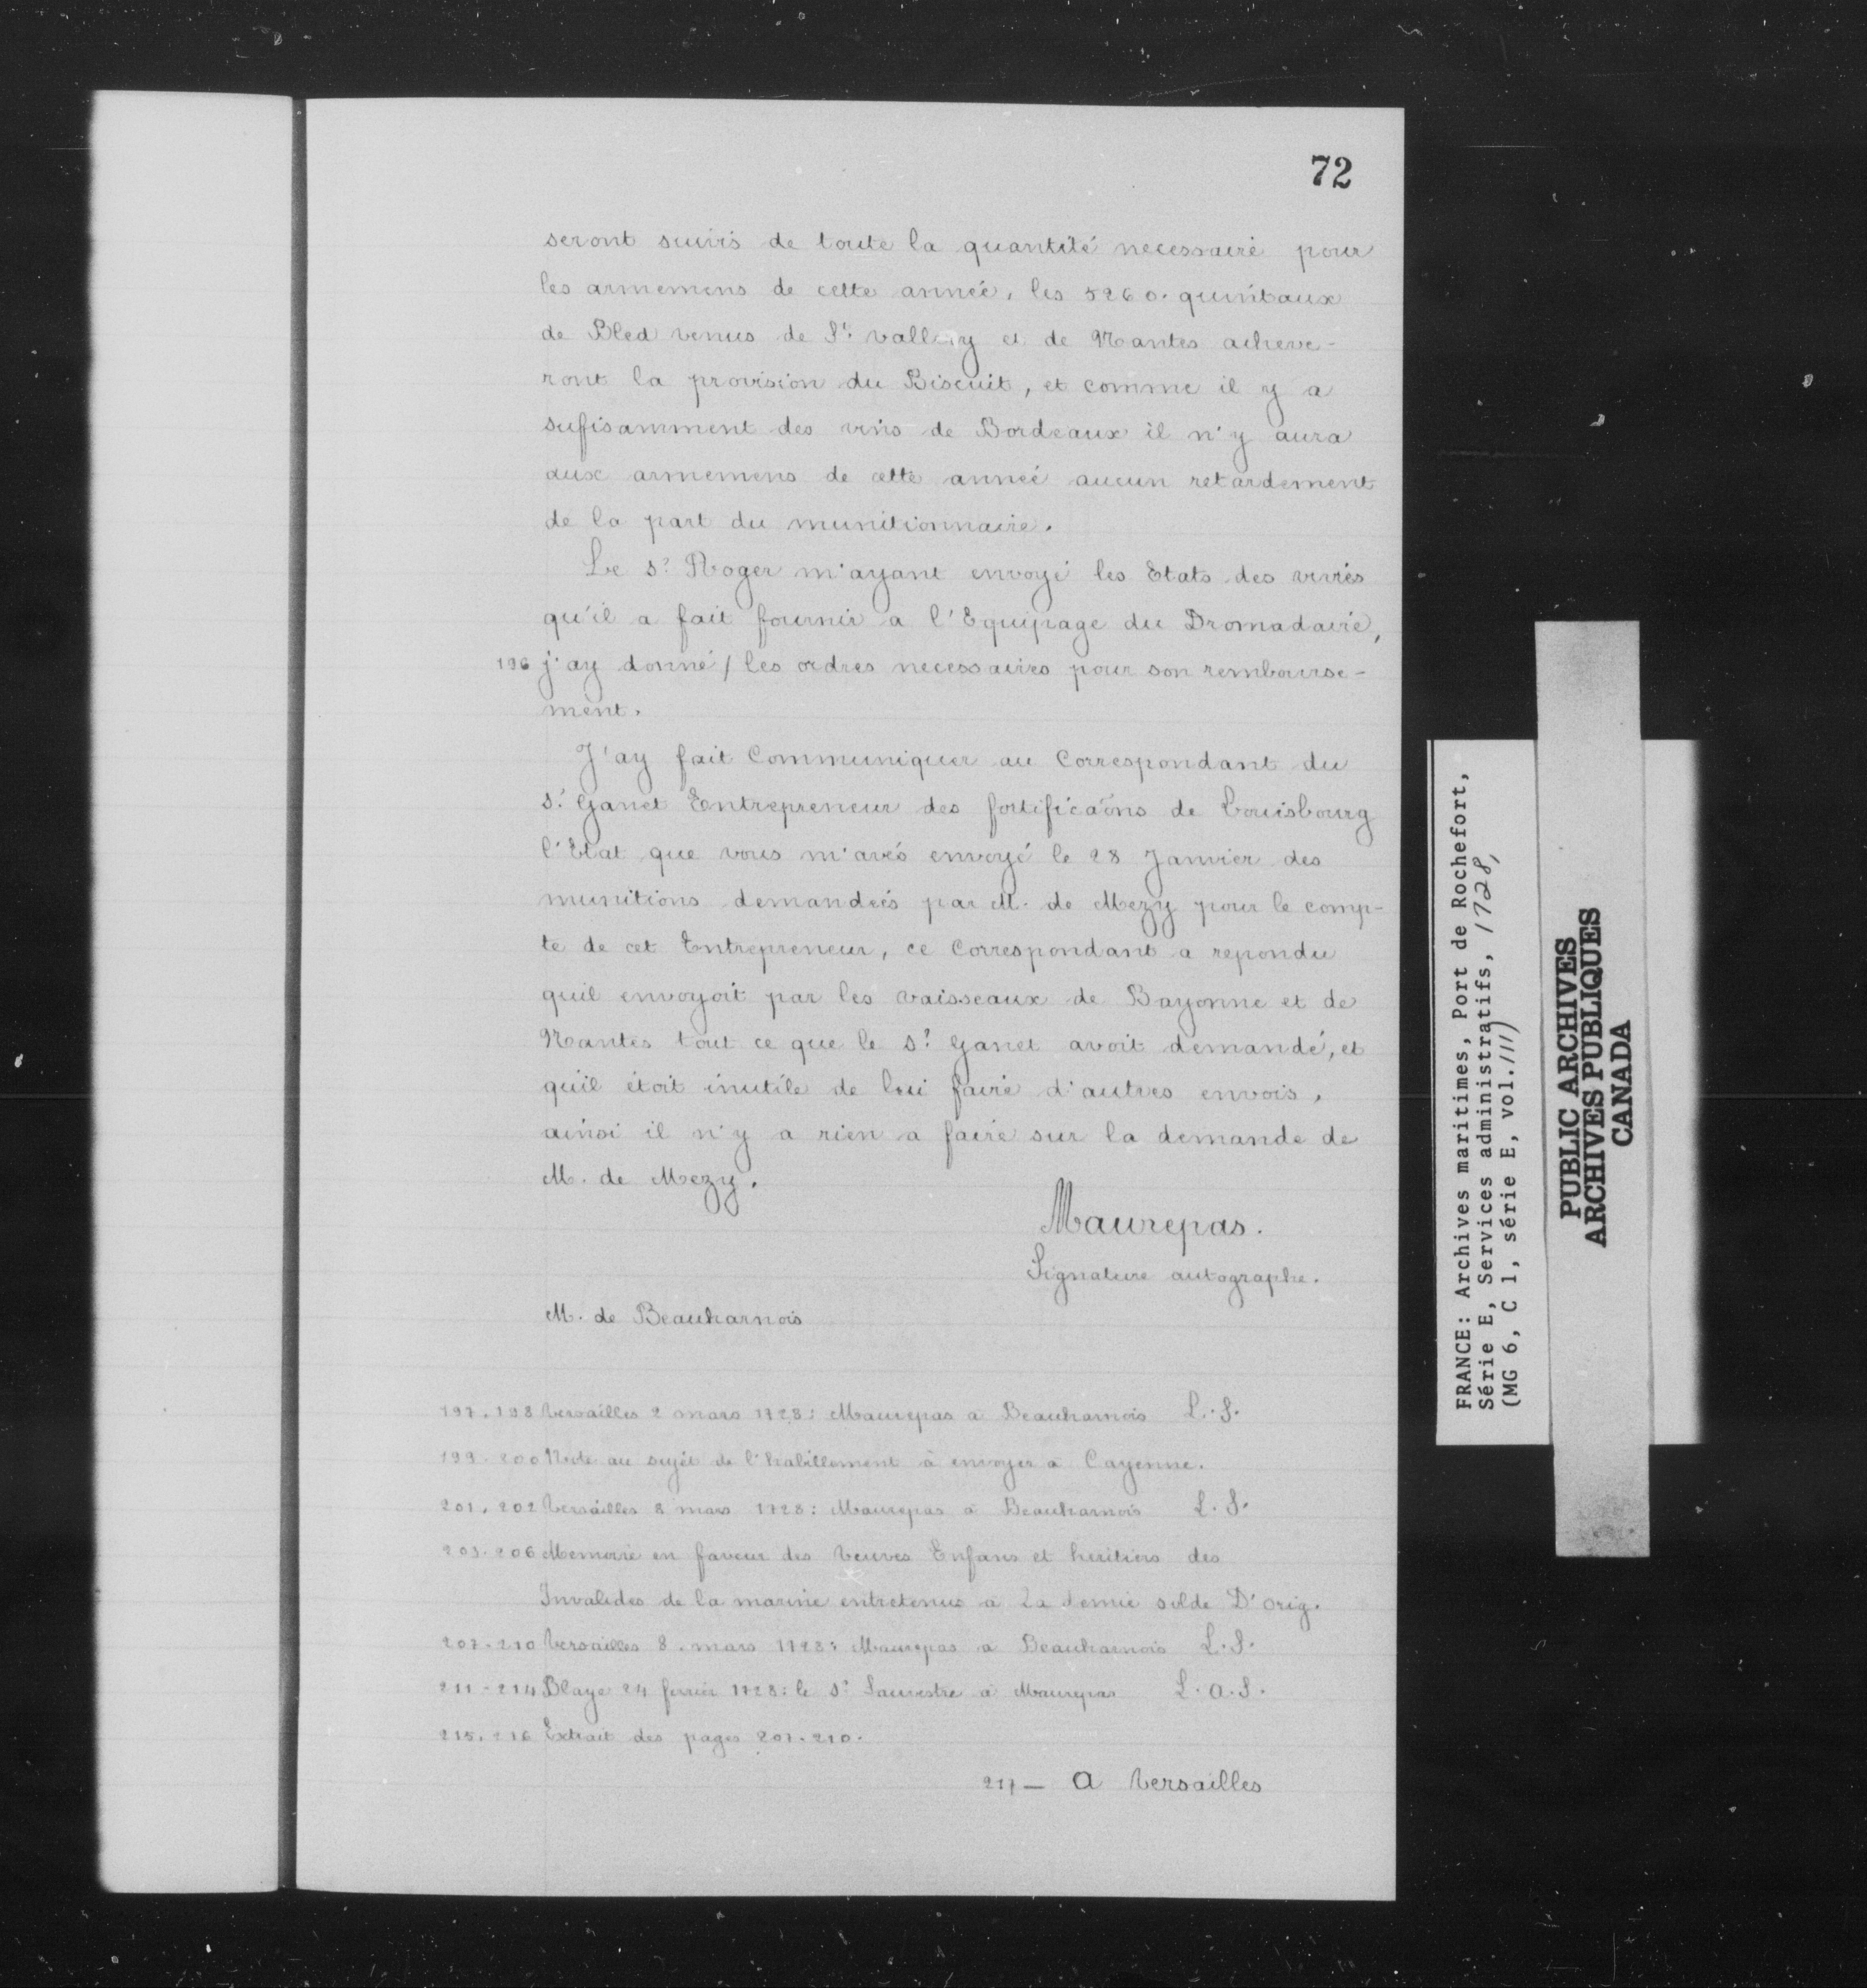 72
seront suivis de toute la quantité necessaire pour
les armemens de cette année, les 5260. quintaux
de Bled venus de St. vallery et de Nantes acheve-
ront la provision du Biscuit, et comme il y a
sufisamment des vins de Bordeaux il n'y aura
aux armemens de cette année aucun retardement
de la part du munitionnaire.
Le Sr. Roger m'ayant envoyé les Etats des vivres
qu'il a fait fournir a l'Equipage du Dromadaire,
196 j'ay donné / les ordres necessaires pour son rembourse-
ment.
J'ay fait Communiquer au Correspondant du
Sr. Ganet Entrepreneur des fortificaöns de Louisbourg
l'Etat que vous m'avés envoyé le 28 Janvier des
munitions demandées par M. de Mezy pour le comp-
te de cet Entrepreneur, ce Correspondant a repondu
quil envoyoit par les vaisseaux de Bayonne et de
Nantes tout ce que le Sr. Ganet avoit demandé, et
qu'il étoit inutile de lui faire d'autres envois,
ainsi il n'y a rien a faire sur la demande de
M. de Mezy.
Maurepas.
Signature autographe.
M. de Beauharnois
197.198 Versailles 2 mars 1728: Maurepas a Beauharnois L.S.
199-200 Note au sujet de l'habillement à envoyer a Cayenne.
201.202 Versailles 8 mars 1728: Maurepas a Beauharnois L.S.
203-206 Memoire en faveur des Veuves Enfans et heritiers des
Invalides de la marine entretenus a La demie solde D' orig.
207-210 Versailles 8. mars 1728: Maurepas a Beauharnois L.S.
211-214 Blaye 24 fevrier 1728: le Sr. Sauvestre à Maurepas L.a.S.
215.216 Extrait des pages 207-210.
217— a Versailles
FRANCE: Archives maritimes, Port de Rochefort,
Série E, Services administratifs, 1728,
(MG 6, C 1, série E, vol. 111)
PUBLIC ARCHIVES
ARCHIVES PUBLIQUES
CANADA